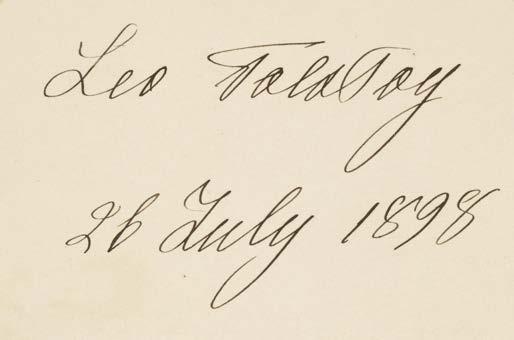 Leo Tolstoy
26 July 1898